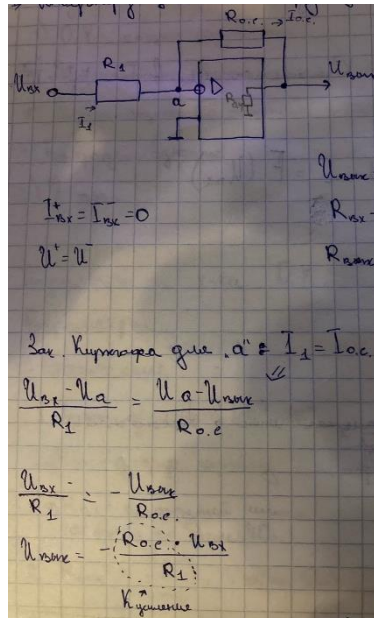 Rо.с. → Iо.с.
R1
Uвх
Uвых
a
I1
Uвых
I⁺вх = I⁻вх = 0
Rвх
U⁺ = U⁻
Rвых
Зак. Кирхгофа для "a": I1 = Iо.с.
(Uвх - Ua)/R1 = (Ua - Uвых)/Rо.с
Uвх/R1 = - Uвых/Rо.с.
Uвых = - (Rо.с. · Uвх)/R1
K усиления